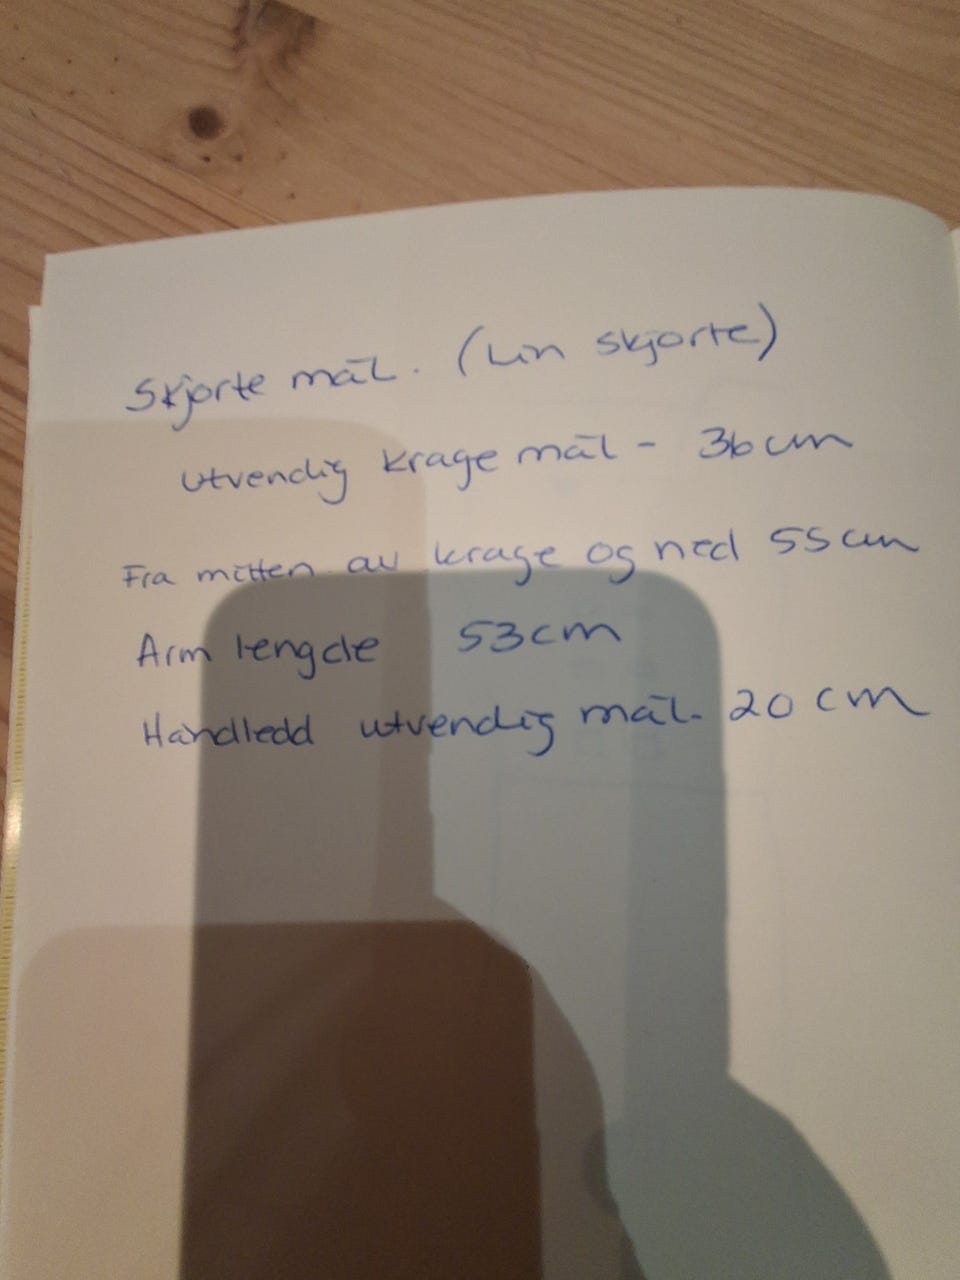 Skjorte mål. (Lin skjorte)
Utvendig krage mål - 36 cm
Fra mitten av krage og ned 55 cm
Arm lengde 53 cm
Håndledd utvendig mål- 20 cm